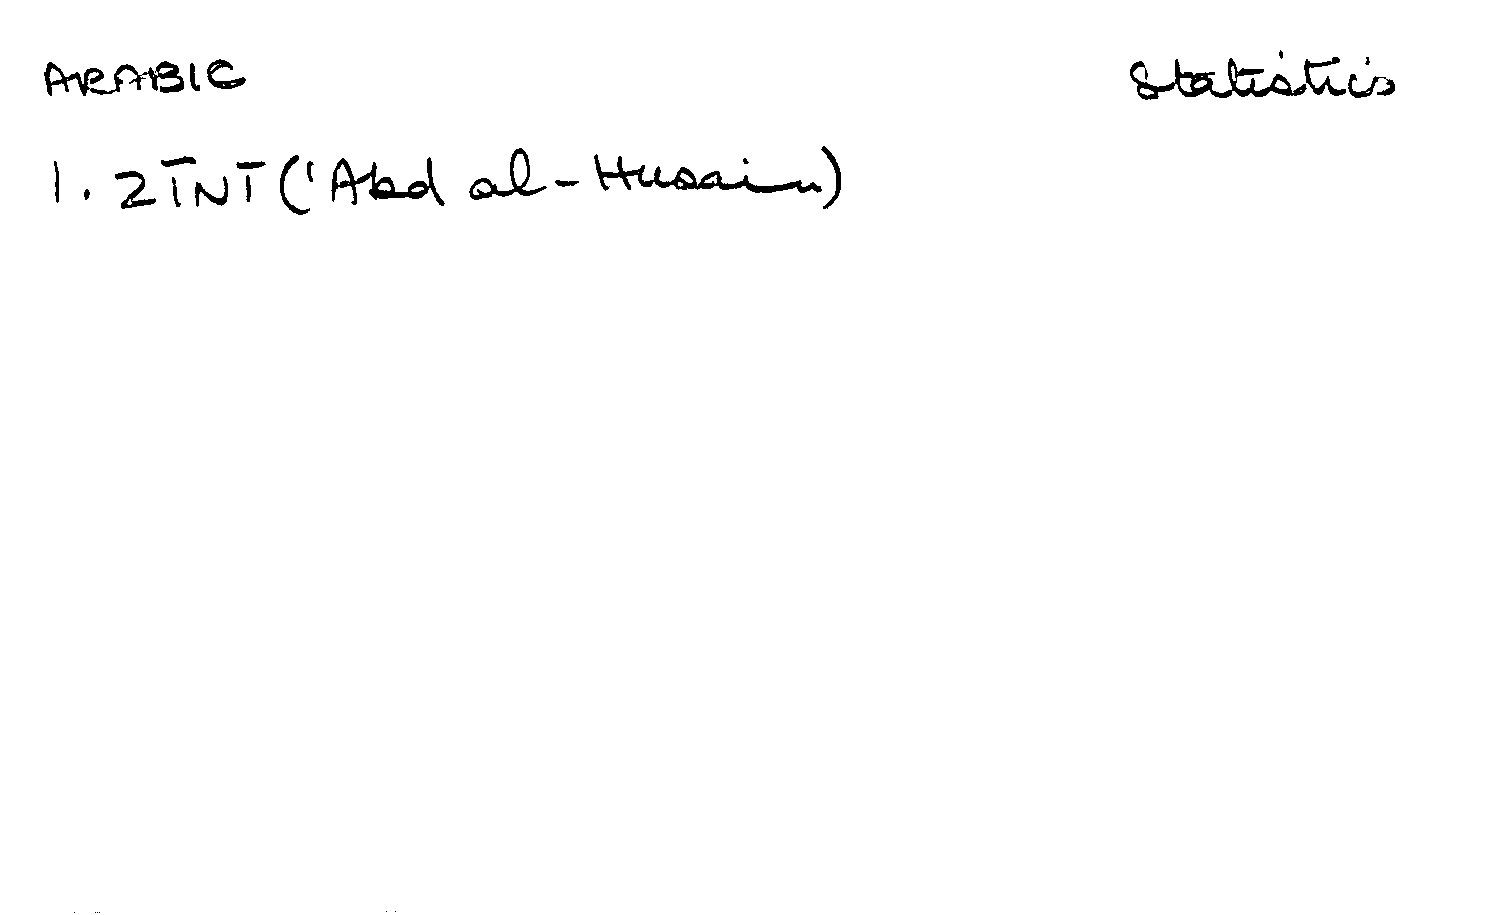 ARABIC Statistics
1. ZĪNĪ ('Abd al-Husain)